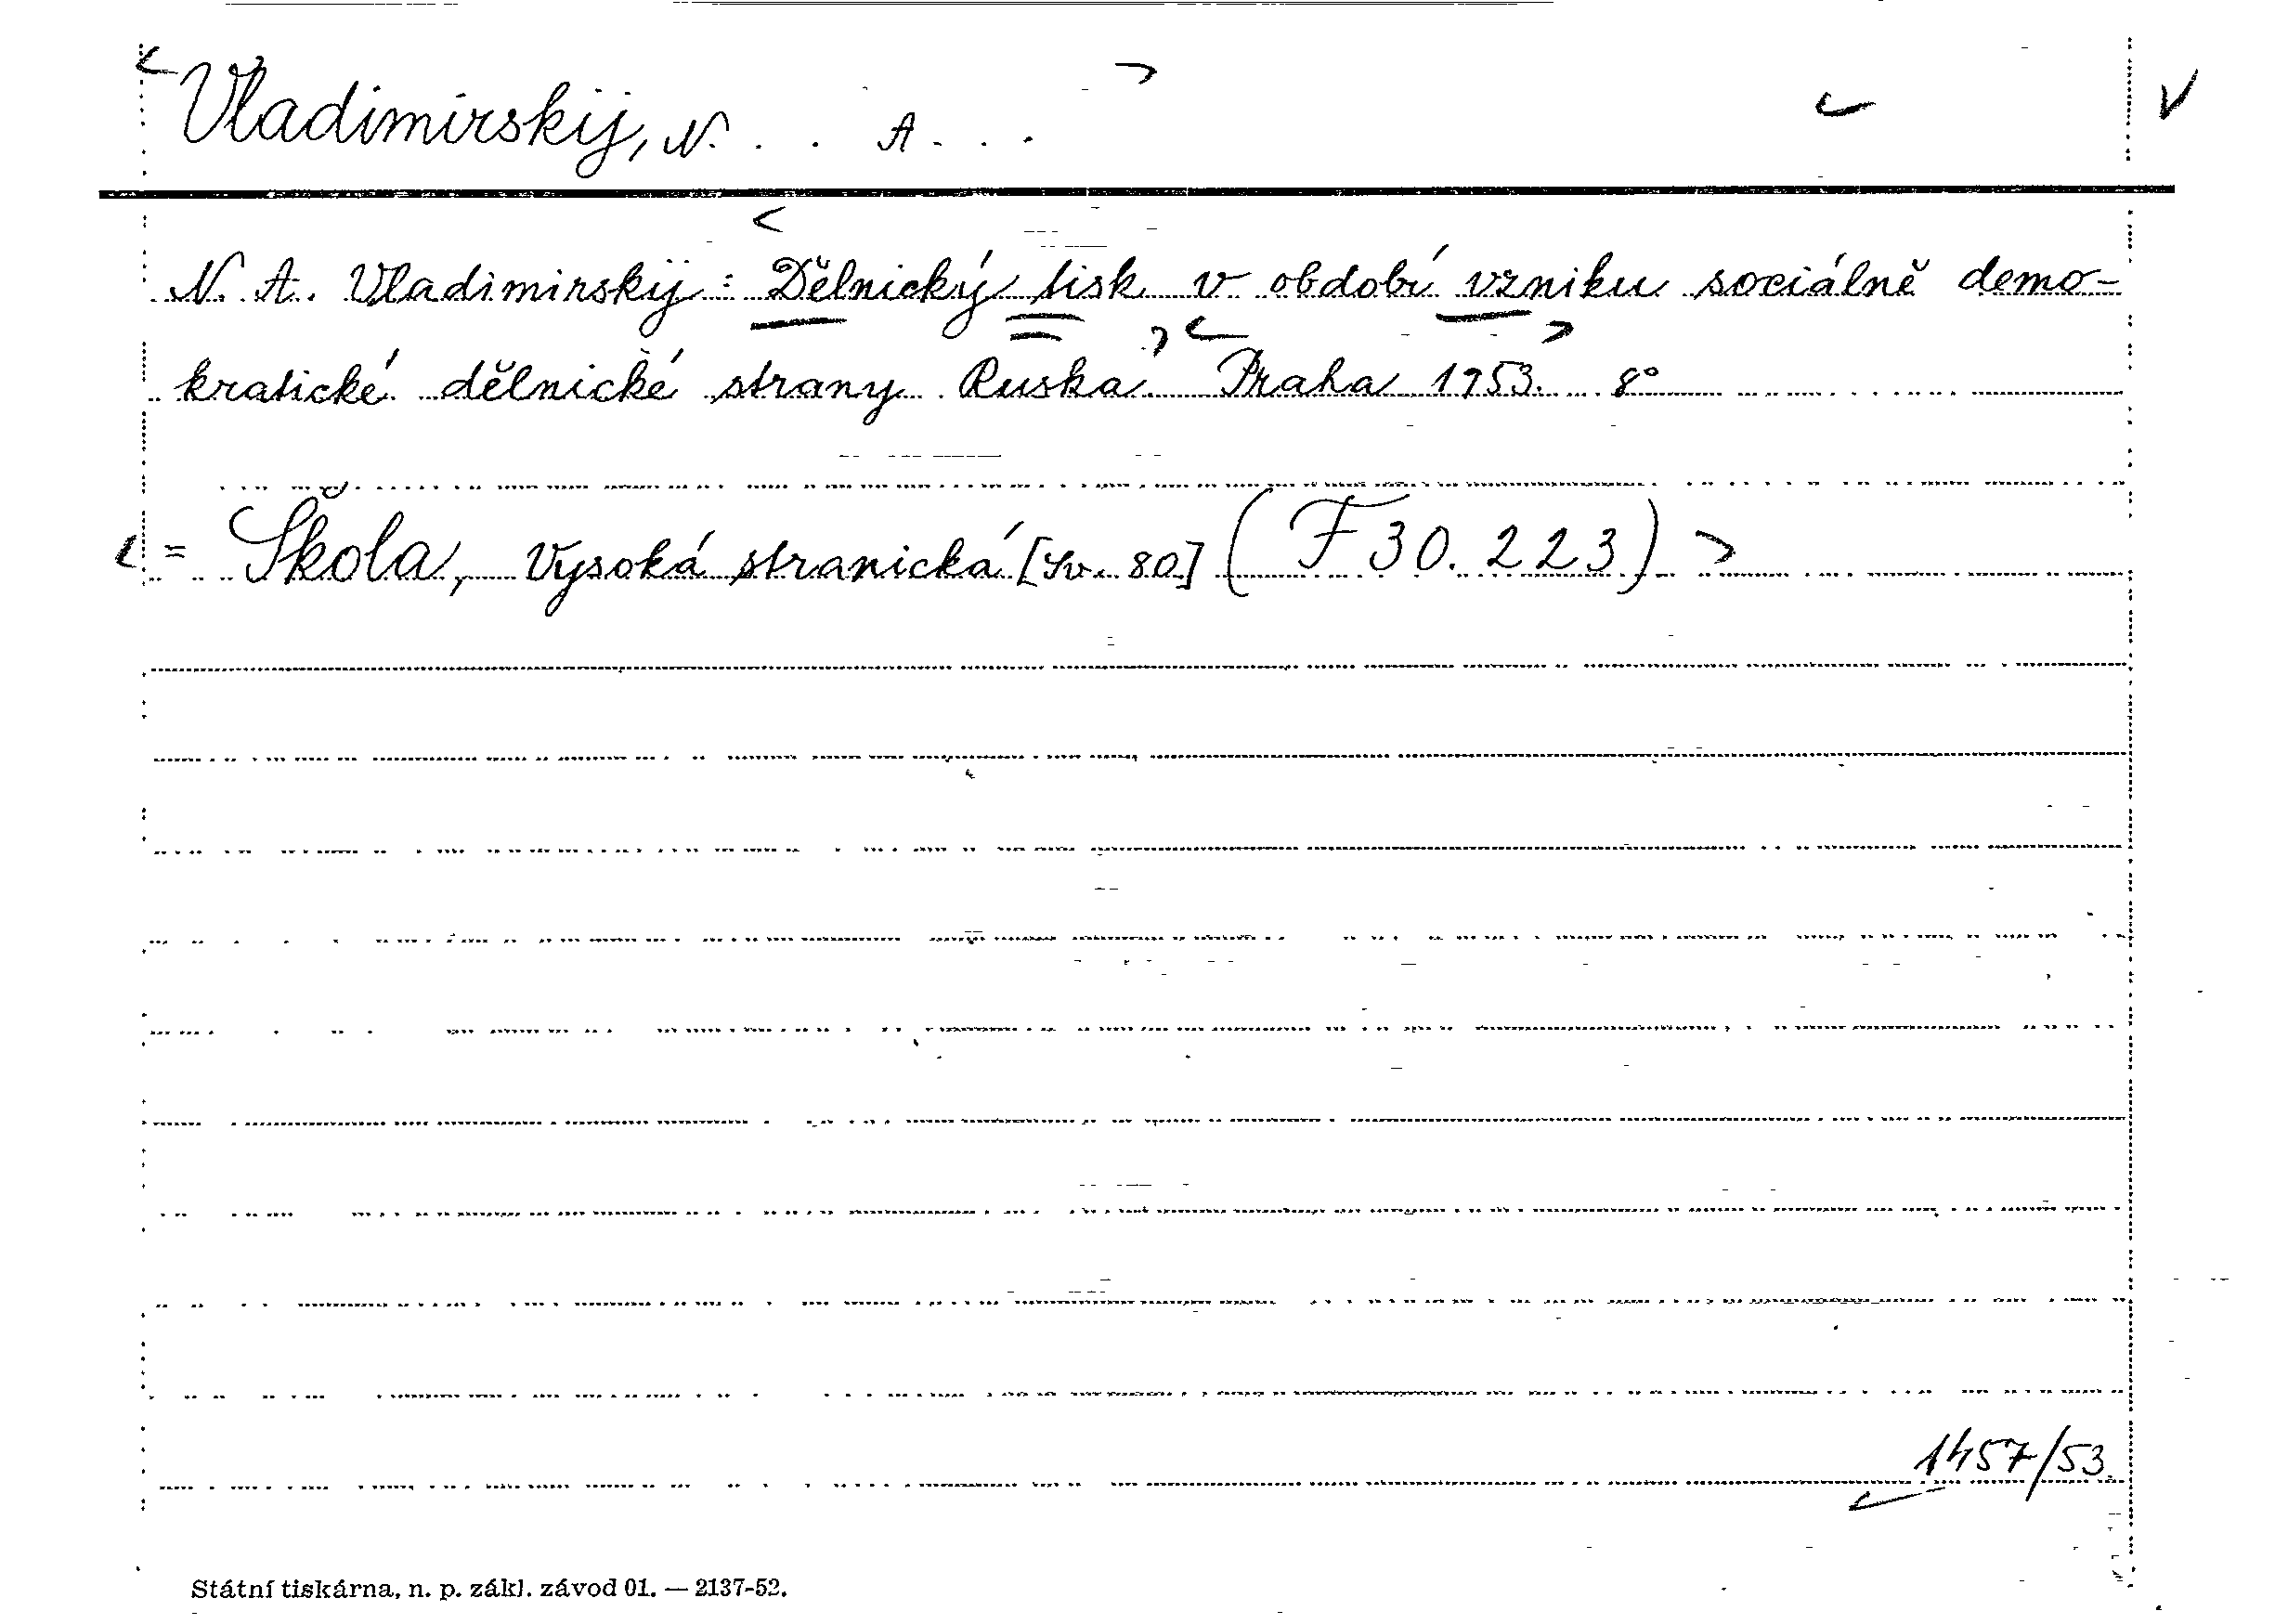 Vladimirskij, N. . . A . . .
N. A. Vladimirskij: Dělnický tisk v období vzniku sociálně demo-
kratické dělnické strany Ruska. Praha 1953. 8°
= Škola, Vysoká stranická [Sv. 80] (F 30.223)
1457/53
Státní tiskárna, n. p. zákl. závod 01. — 2137-52.